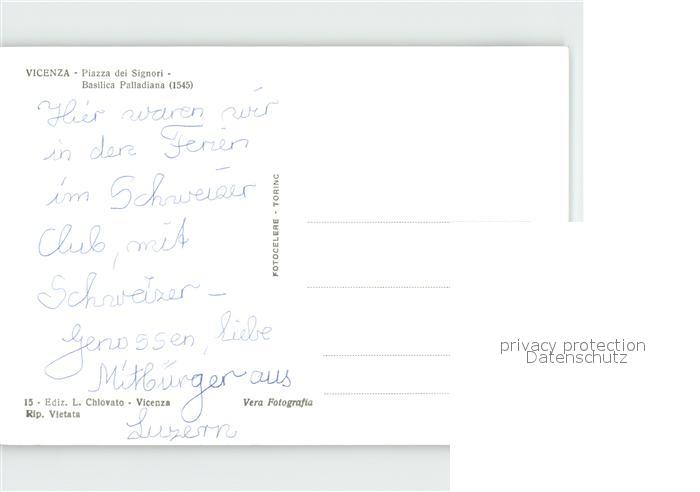 VICENZA - Piazza dei Signori -
Basilica Palladiana (1545)
Hier waren wir
in den Ferien
im Schweizer
Club, mit
Schweizer -
genossen, liebe
Mitbürger aus
Luzern
FOTOCELERE - TORINO
15 - Ediz. L. Chiovato - Vicenza
Rip. Vietata
Vera Fotografia
privacy protection
Datenschutz